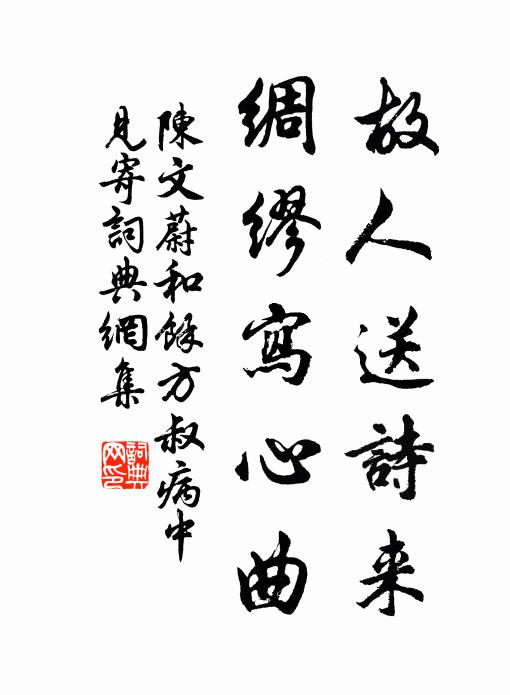 故人送詩来
綢缪寫心曲
陳文蔚和餘方叔病中
見寄詞典網集
詞典
网印